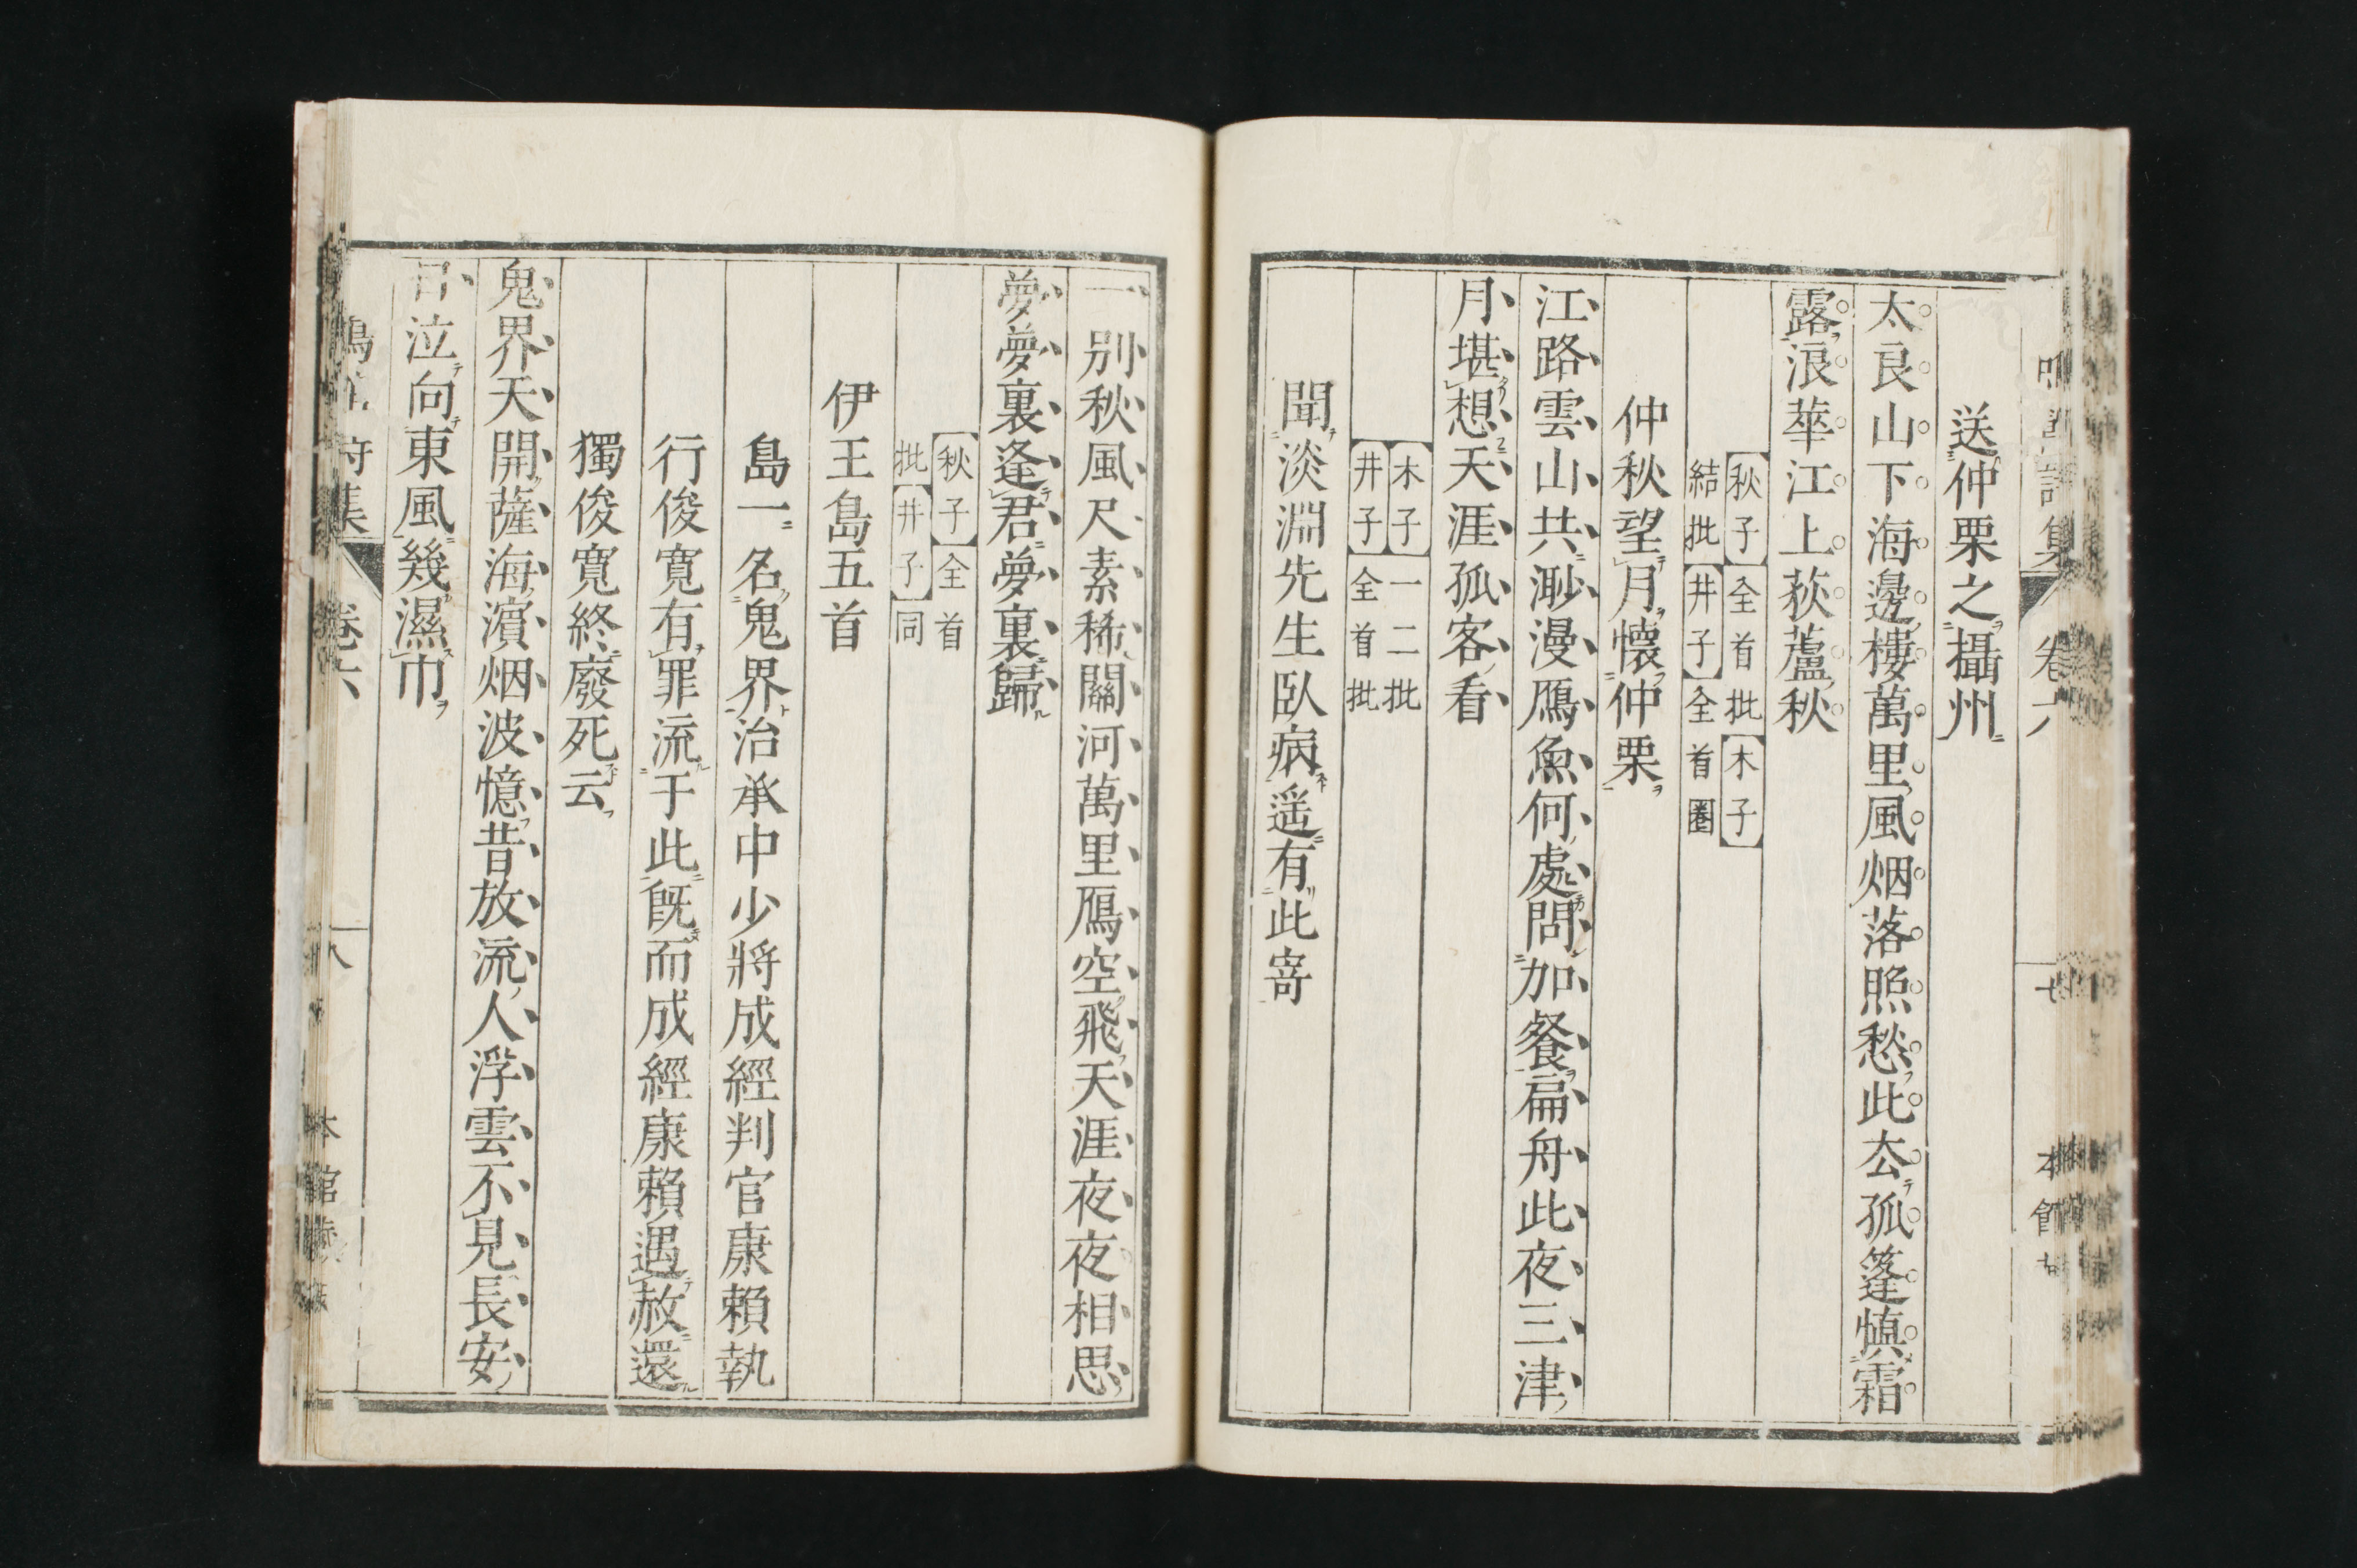 送仲栗之攝州
太良山下海邊樓萬里風烟落照愁此厺孤篷慎霜
露浪華江上荻蘆秋
【秋子】全首批【木子】
結批【井子】全首圈
仲秋望月懷仲栗
江路雲山共渺漫鴈魚何處問加餐扁舟此夜三津
月堪想天涯孤客看
【木子】一二批
【井子】全首批
聞淡淵先生臥病遥有此寄
一別秋風尺素稀關河萬里鴈空飛天涯夜夜相思
夢夢裏逢君夢裏歸
【秋子】全首
批【井子】同
伊王島五首
島一名鬼界治承中少將成經判官康賴執
行俊寬有罪流于此既而成經康賴遇赦還
獨俊寬終廢死云
鬼界天開薩海濱烟波憶昔放流人浮雲不見長安
日泣向東風幾濕巾
詩集
卷六
八
本館